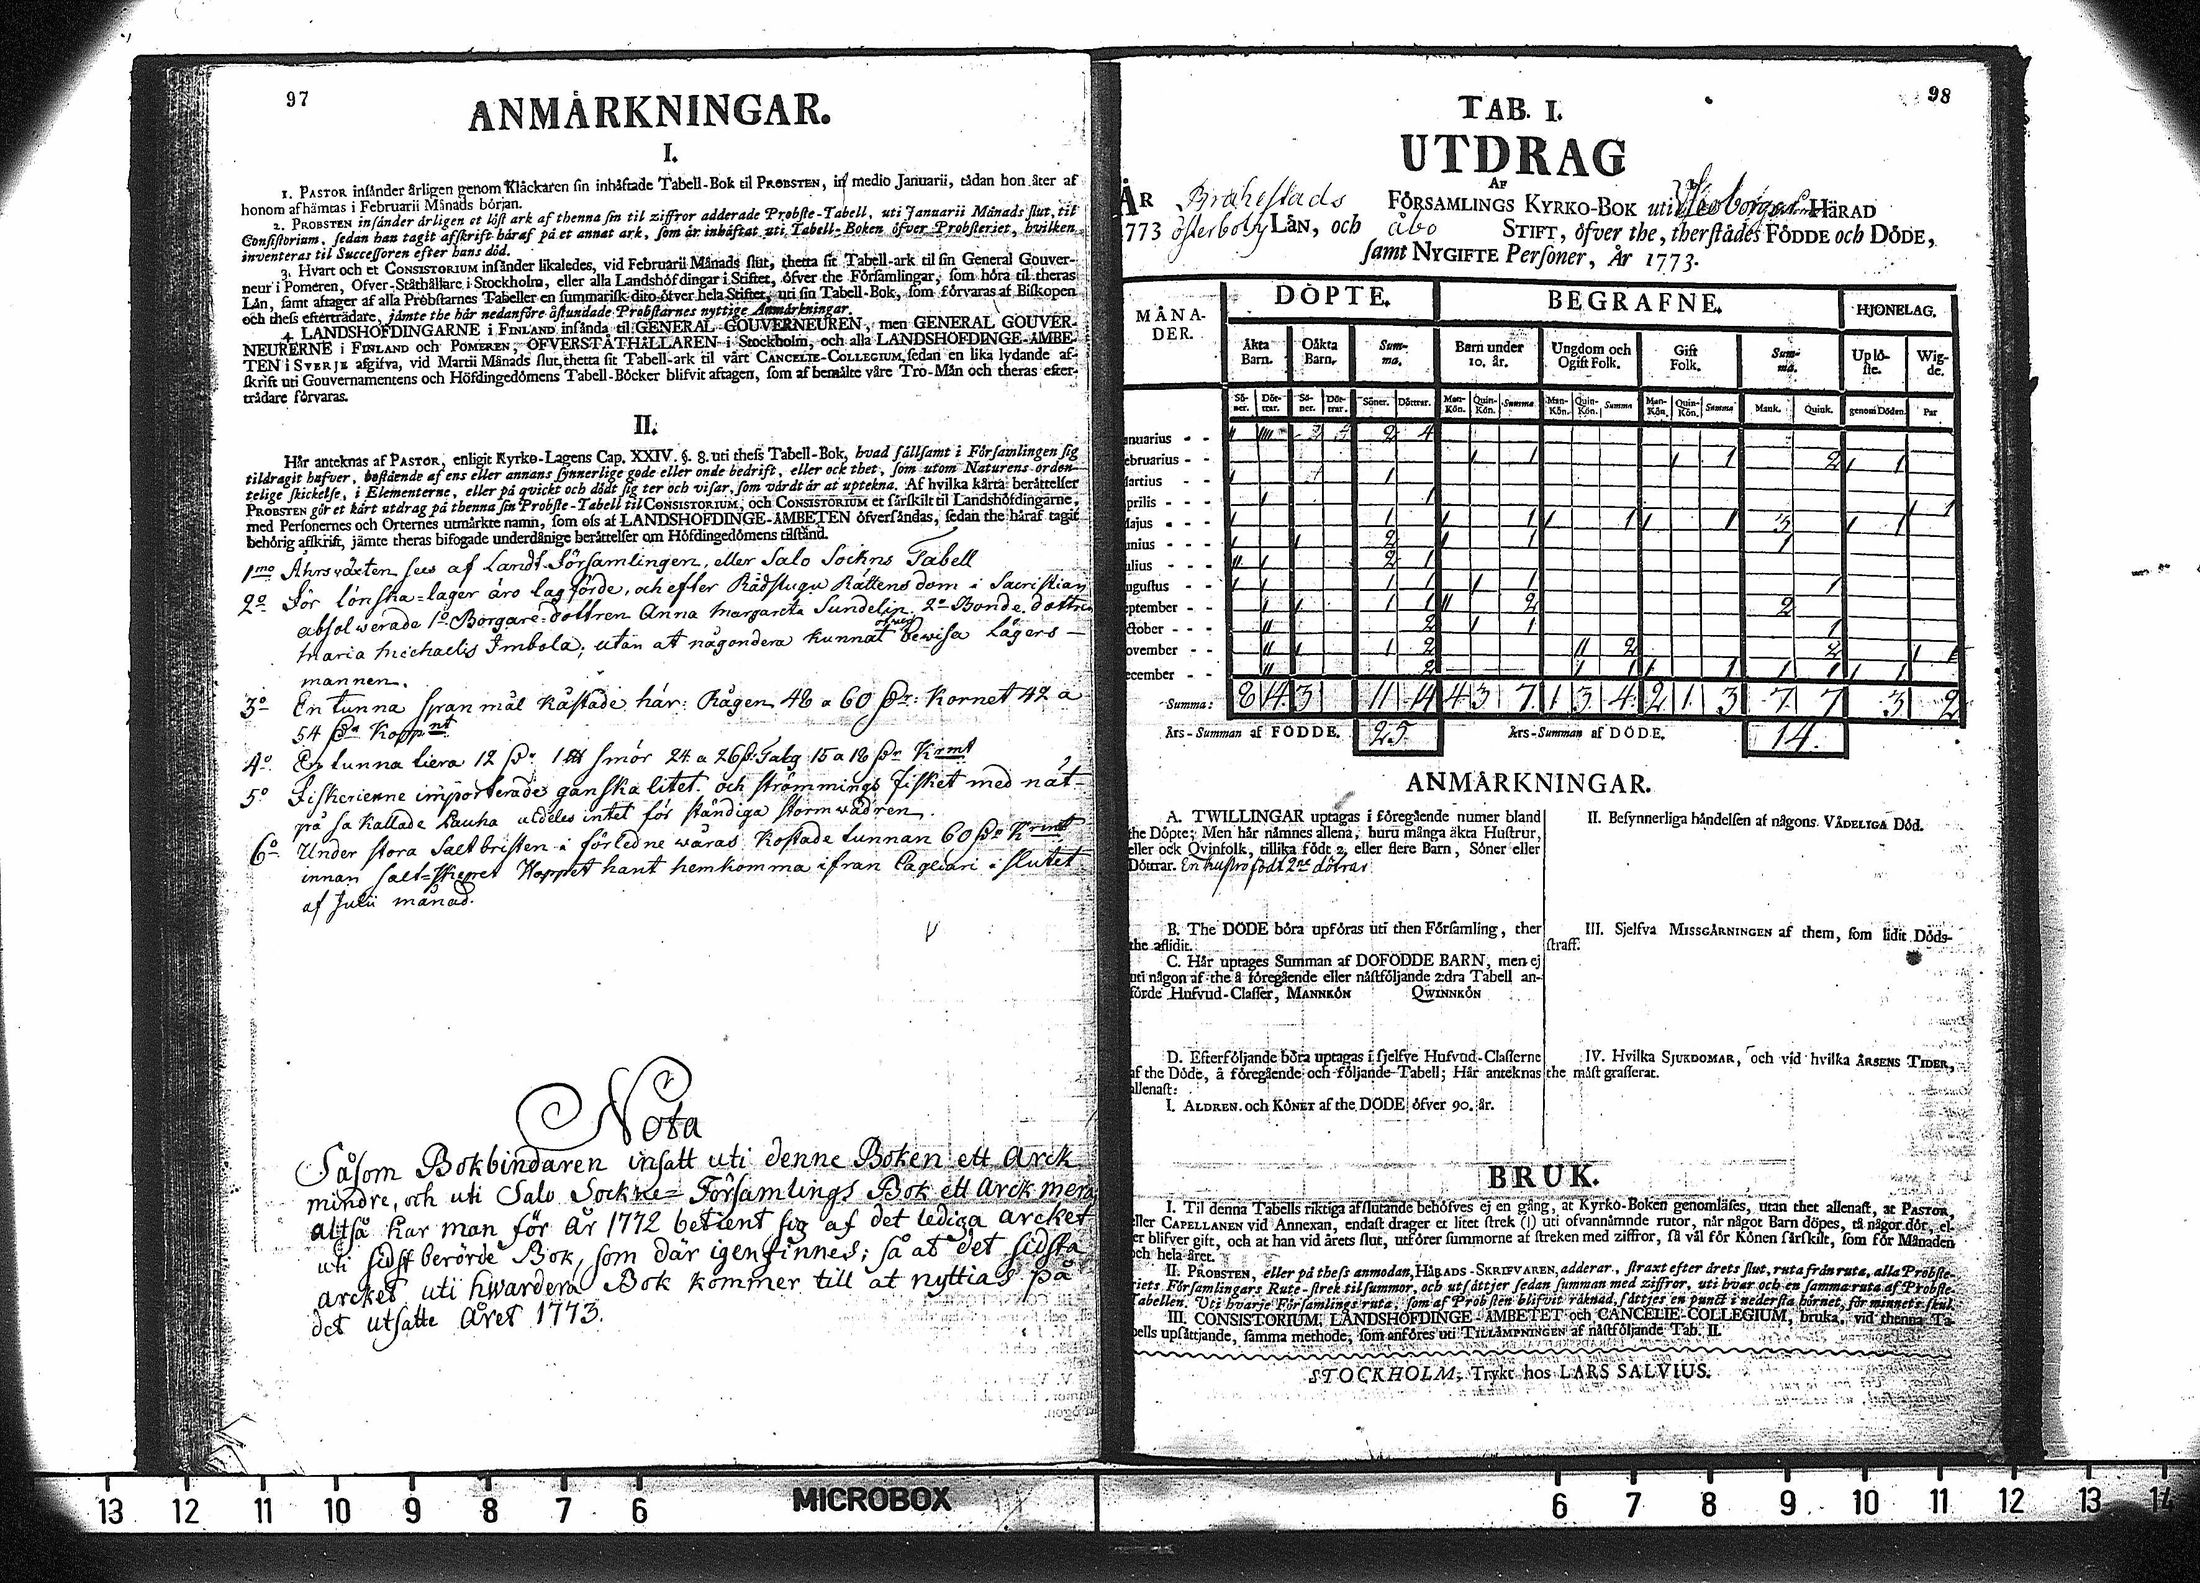 97
ANMÄRKNINGAR.
I.
1. PASTOR insänder årligen genom Klåckaren sin inhäftade Tabell-Bok til PROBSTEN, in medio Januarii, tådan hon åter af
honom afhämtas i Februarii Månads början.
2. PROBSTEN insänder årligen et löst ark af thenna sin til ziffror adderade Probste-Tabell, uti Januarii Månads slut, til
Consistorium, sedan han tagit afskrift häraf på et annat ark, som är inhäftat uti Tabell-Boken öfver Probsteriet, hvilken
inventeras til Successoren efter hans död.
3. Hvart och et CONSISTORIUM insänder likaledes, vid Februarii Månads slut, thetta sit Tabell-ark til sin General Gouver-
neur i Pomeren, Öfver-Ståthållare i Stockholm, eller alla Landshöfdingar i Stiftet, öfver the Församlingar, som höra til theras
Län, samt aftager af alla Probstarnes Tabeller en summarisk dito öfver hela Stiftet, uti sin Tabell-Bok, som förvaras af Biskopen
och thess efterträdare, jämte the här nedanföre åstundade Probstarnes nyttige Anmärkningar.
4. LANDSHÖFDINGARNE i FINLAND insända til GENERAL GOUVERNEUREN, men GENERAL GOUVER-
NEURERNE i FINLAND och POMEREN, ÖFVERSTÅTHÅLLAREN i Stockholm, och alla LANDSHÖFDINGE-ÄMBE-
TEN i SVERJE afgifva, vid Martii Månads slut, thetta sit Tabell-ark til vårt CANCELIE-COLLEGIUM, sedan en lika lydande af-
skrift uti Gouvernamentens och Höfdingedömens Tabell-Böcker blifvit aftagen, som af bemälte våre Tro-Män och theras efter-
trädare förvaras.
II.
Här anteknas af PASTOR, enligit Kyrko-Lagens Cap. XXIV. §. 8. uti thess Tabell-Bok, hvad sällsamt i Församlingen sig
tildragit hafver, bestående af ens eller annans synnerlige gode eller onde bedrift, eller ock thet, som utom Naturens orden-
telige skickelse, i Elementerne, eller på qvickt och dödt sig ter och visar, som värdt är at uptekna. Af hvilka kårta berättelser
PROBSTEN gör et kårt utdrag på thenna sin Probste-Tabell til CONSISTORIUM, och CONSISTORIUM et särskilt til Landshöfdingarne,
med Personernes och Orternes utmärkte namn, som oss af LANDSHÖFDINGE-ÄMBETEN öfversändas, sedan the häraf tagit
behörig afskrift, jämte theras bifogade underdånige berättelser om Höfdingedömens tilstånd.
1mo Åhrswäxten sees af Landt Församlingen, eller Salo Sockns Tabell
2o För lönska-lager äro lagförde, och efter Rådstugu Rättens dom i Sacristian
absolwerade 1o Borgare-dottren Anna Margareta Sundelin. 2o Bonde dottren
Maria Michaelis Imbola; utan at någondera kunnat bewisa Lägers-
mannen.
3o En tunna spanmål kåstade här: Rågen 48 a 60 Dr: Kornet 42 a
54 Dr Koppmt
4o En tunna tiera 12 Dr 1 ℔ smör 24 a 26 Talg 15 a 18 Dr Krmt
5o Fiskerierne importerade ganska litet. och strömmings fisket med nät
på så kallade Lauha aldeles intet för ständiga stormwädren.
6o Under stora Saltbristen i förledne wåras kostade tunnan 60 Dr Krmt
innan salt-skepet Hoppet hant hemkomma ifran Cagliari i slutet
af Julii månad.
Nota
Såsom Bokbindaren insatt uti denne Boken ett Arck
mindre, och uti Salo Sockne-Församlings Bok ett Arck mera
altså har man för år 1772 betient sig af det lediga arcket
uti sidst berörde Bok, som där igenfinnes; så at det sidsta
arcket uti hwardera Bok kommer till at nyttias på
det utsatte Året 1773.
98
TAB. I.
UTDRAG
AF
ÅR Brahestads FÖRSAMLINGS KYRKO-BOK uti HÄRAD
1773 österbotn LÄN, och åbo STIFT, öfver the, therstädes FÖDDE och DÖDE,
samt NYGIFTE Personer, År 1773.
MÅNA-DER. DÖPTE. BEGRAFNE. HJONELAG.
Äkta Barn. Oäkta Barn. Summa. Barn under 10. år. Ungdom och Ogift Folk. Gift Folk. Summa. Uplöste. Wigde.
Söner. Döttrar. Söner. Döttrar. Söner. Döttrar. Man-Kön. Quin-Kön. Summa Man-Kön. Quin-Kön. Summa Man-Kön. Quin-Kön. Summa Mank. Quink. genom Döden. Par
anuarius - - 2 4
ebruarius - - 2
artius - -
prilis - -
ajus - -
unius - - 2
ulius - - 2
ugustus - -
eptember - - 2 2
ctober - - 2
ovember - - 2 2 2
ecember - - 2
Summa: 8 14 3 11 14 4 3 7 1 3 4 2 1 3 7 7 3 2
Års-Summan af FÖDDE. 25. Års-Summan af DÖDE. 14.
ANMÄRKNINGAR.
A. TWILLINGAR uptagas i föregående numer bland
the Döpte; Men här nämnes allena, huru många äkta Hustrur,
eller ock Qvinfolk, tillika födt 2, eller flere Barn, Söner eller
Döttrar. En hustro födt 2ne dötrar
B. The DÖDE böra upföras uti then Församling, ther
the aflidit.
C. Här uptages Summan af DÖFÖDDE BARN, men ej
uti någon af the å föregående eller nästföljande 2dra Tabell an-
förde Hufvud-Classer, MANNKÖN QWINNKÖN
D. Efterföljande böra uptagas i sjelfve Hufvud-Classerne
af the Döde, å föregående och följande Tabell; Här anteknas
allenast:
I. ÅLDREN och KÖNET af the DÖDE öfver 90. år.
II. Besynnerliga händelsen af någons VÅDELIGA Död.
III. Sjelfva MISSGÄRNINGEN af them, som lidit Döds-
straff.
IV. Hvilka SJUKDOMAR, och vid hvilka ÅRSENS TIDER,
the mäst grasserat.
BRUK.
I. Til denna Tabells riktiga afslutande behöfves ej en gång, at Kyrko-Boken genomläses, utan thet allenast, at PASTOR,
eller CAPELLANEN vid Annexan, endast drager et litet strek (|) uti ofvannämnde rutor, när något Barn döpes, tå någor dör, el-
er blifver gift, och at han vid årets slut, utförer summorne af streken med ziffror, så väl för Könen särskilt, som för Månaden
och hela året.
II. PROBSTEN, eller på thess anmodan, HÄRADS-SKRIFVAREN, adderar, straxt efter årets slut, ruta från ruta, alla Probste-
riets Församlingars Rute-strek tilsummor, och utsättjer sedan summan med ziffror, uti hvar och en samma ruta af Probste-
Tabellen. Uti hvarje Församlings ruta, som af Probsten blifvit räknad, sättjes en punct i nedersta hörnet, för minnets skul.
III. CONSISTORIUM, LANDSHÖFDINGE-ÄMBETET och CANCELIE-COLLEGIUM, bruka, vid thenna Ta-
bells upsättjande, samma methode, som anföres uti TILLÄMPNINGEN af nästföljande Tab. II.
STOCKHOLM, Trykt hos LARS SALVIUS.
13 12 11 10 9 8 7 6 MICROBOX 6 7 8 9 10 11 12 13 14